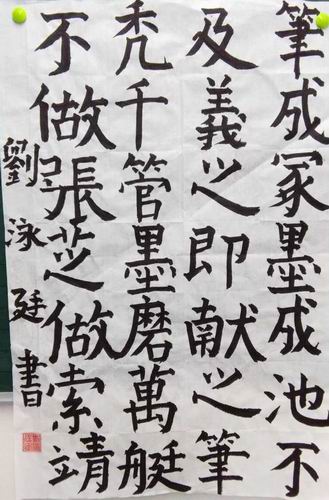 筆成冢墨成池不
及羲之即献之筆
禿千管墨磨萬艇
不做張芝做索靖
劉泳廷書